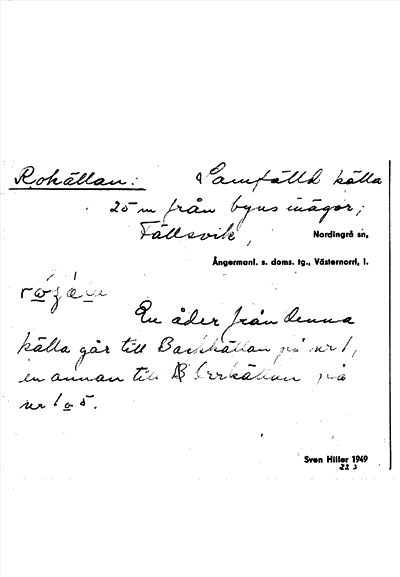 Rokällan: Samfälld källa
25 m från byns inägor,
Fällsvik, Nordingrå sn,
Ångermanl. s. doms. tg., Västernorrl, l.
En åder från denna
källa går till Backkällan på nr 1,
en annan till källan på
nr 1 o 5.
Sven Hiller 1949
22 3